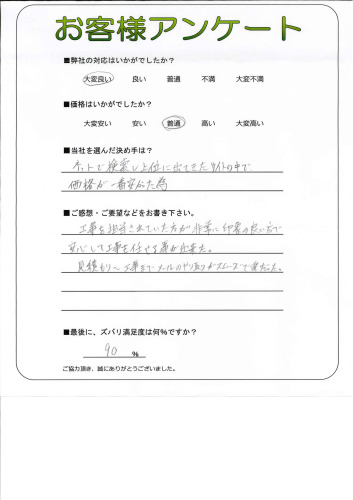 お客様アンケート
■弊社の対応はいかがでしたか?
大変良い 良い 普通 不満 大変不満
■価格はいかがでしたか?
大変安い 安い 普通 高い 大変高い
■当社を選んだ決め手は?
ネットで検索し上位に出てきたサイトの中で
価格が一番安かった為
■ご感想・ご要望などをお書き下さい。
工事を担当されていた方が非常に印象の良い方で
安心して工事を任せる事が出来た。
見積もり〜工事までメールのやり取りがスムーズで楽だった。
■最後に、ズバリ満足度は何%ですか?
90 %
ご協力頂き、誠にありがとうございました。